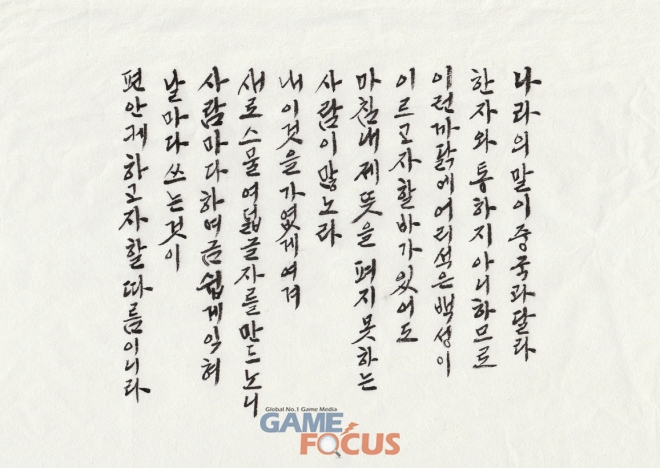 나라의 말이 중국과 달라
한자와 통하지 아니하므로
이런 까닭에 어리석은 백성이
이르고자 할 바가 있어도
마침내 제 뜻을 펴지 못하는
사람이 많노라
내 이것을 가엾게 여겨
새로 스물여덟 글자를 만드노니
사람마다 하여금 쉽게 익혀
날마다 쓰는 것이
편안케 하고자 할 따름이니라
Global No.1 Game Media
GAME
FOCUS